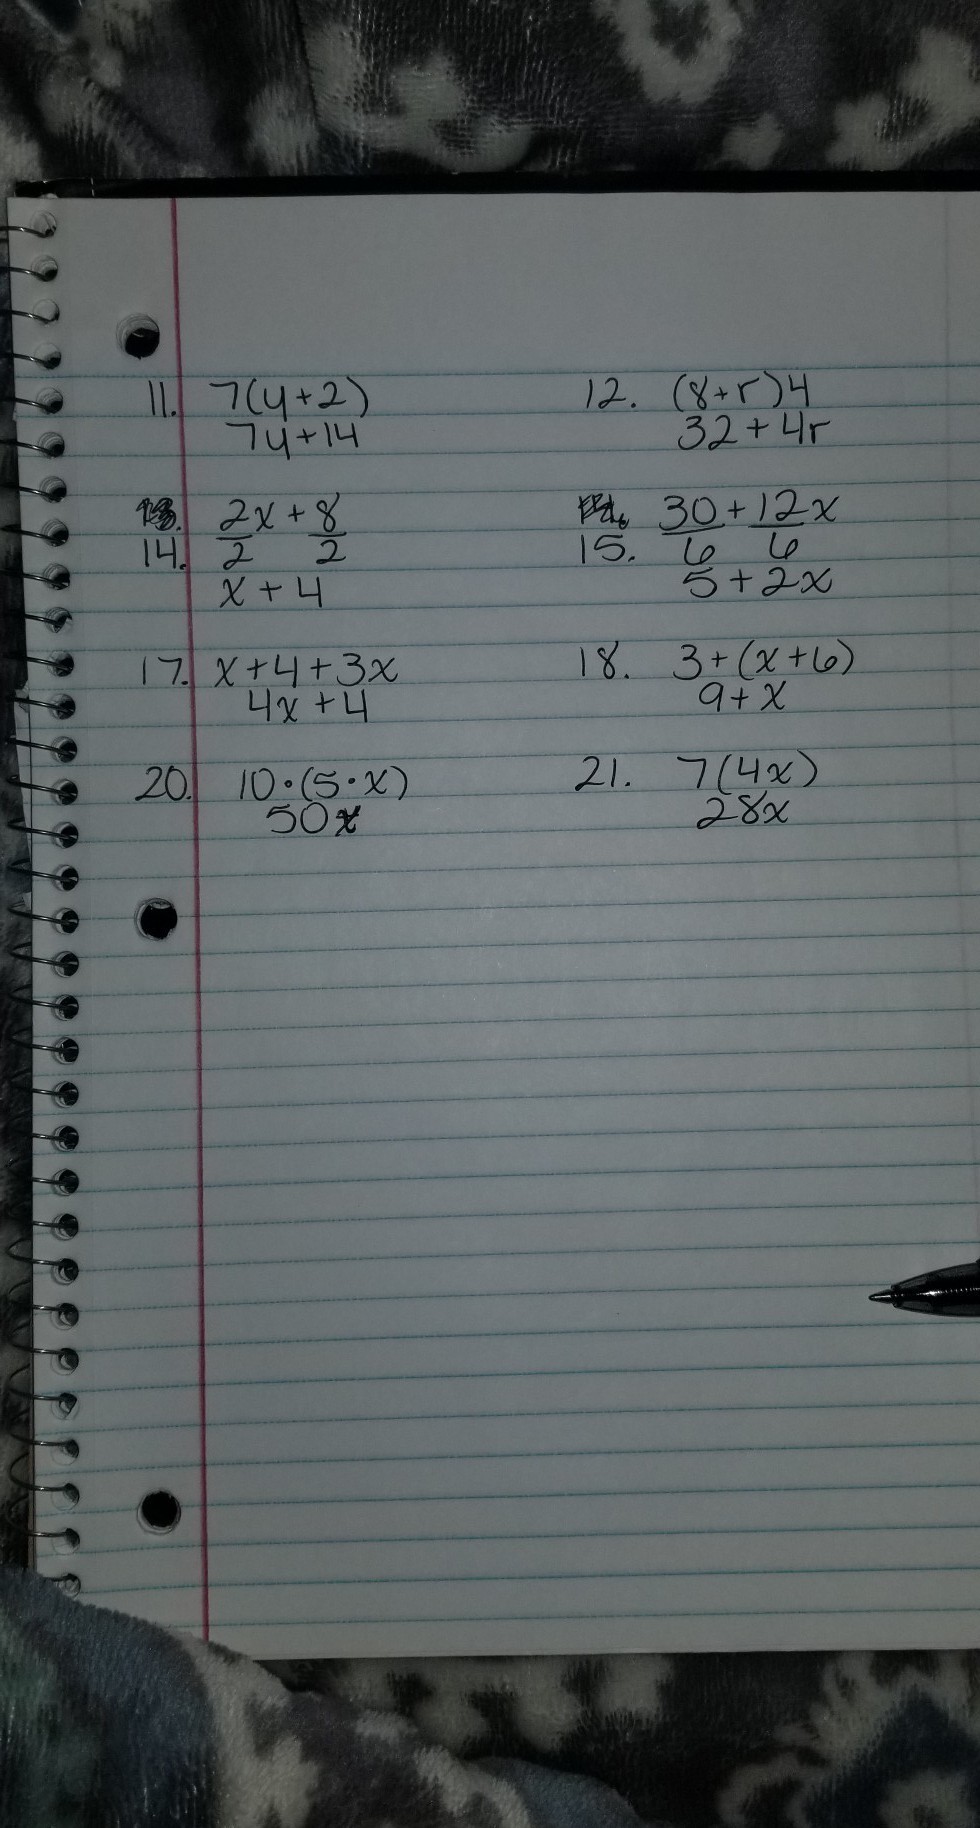 11. 7(y+2)
7y+14
12. (8+r)4
32+4r
14. 2x + 8
2 2
x + 4
15. 30 + 12x
6 6
5 + 2x
17. x+4+3x
4x+4
18. 3+(x+6)
9+x
20. 10·(5·x)
50x
21. 7(4x)
28x